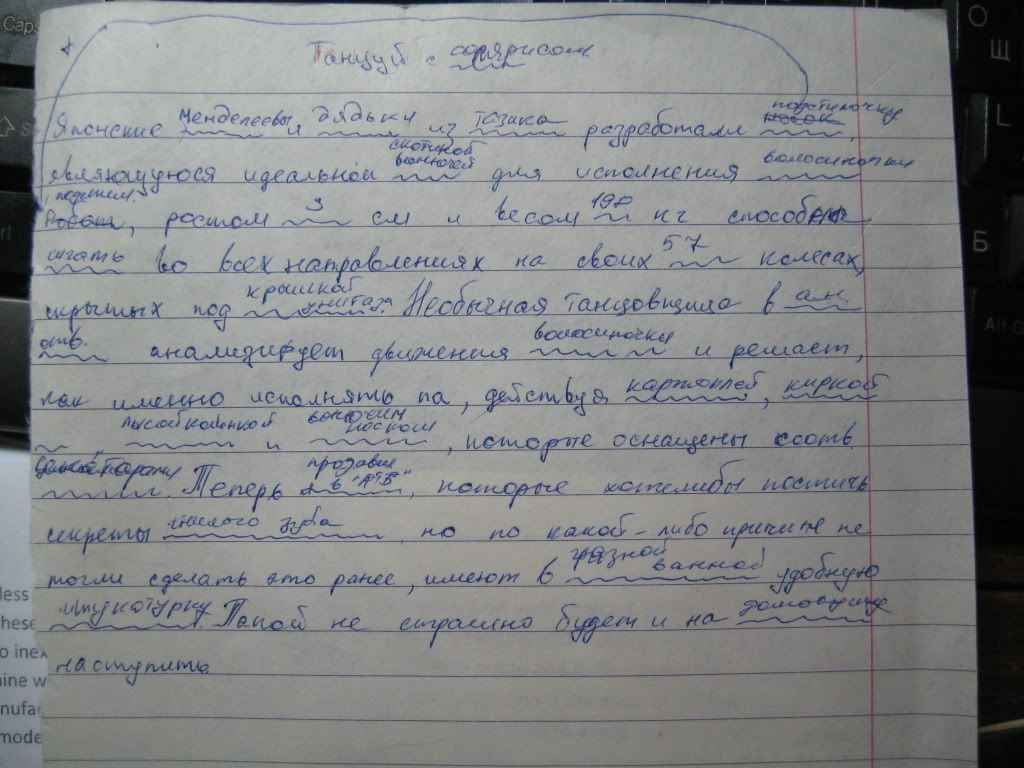 Танцуй с
Японские Менделеевы и дядьки из тазика разработали подстилочку,
являющуюся идеальной скотиной вонючей для исполнения волосинопки
ростом 3 см и весом 198 кг способен
шгать во всех направлениях на своих 57 колесах,
скрытых под крышкой унитаза. Необычная танцовщица в ан.
отв. анализирует движения волосипочки и решает,
как именно исполнять па, действуя картоплей, киркой
лысой коленкой и вонючим носком, которые оснащены соотв.
Теперь продавцы в "АТБ", которые хотели бы постичь
секреты гнилого зуба, но по какой-либо причине не
могли сделать это ранее, имеют в грязной ванной удобную
штукатурку. Такой не страшно будет и на домовущу
наступить.